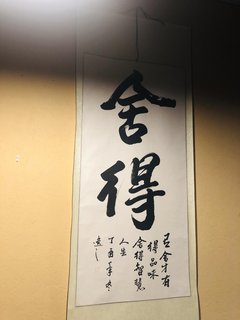 舍得
有舍才有
得品味
舍得智慧
人生
丁酉年冬